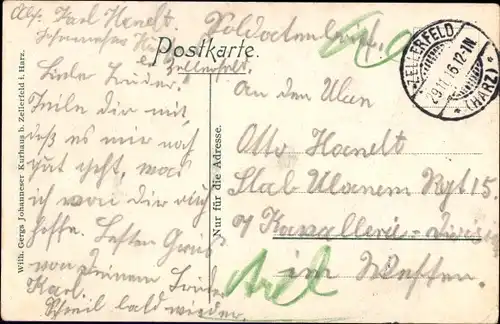 Abs. Karl Hanelt
Johanneser
b. Zellerfeld.
Soldatenbrief.
Postkarte.
ZELLERFELD
29.11.16.12-1N
* (HARZ) *
Wilh. Gergs Johanneser Kurhaus b. Zellerfeld i. Harz.
Nur für die Adresse.
Liebe Bruder.
Teile dir mit,
daß es mir noch
gut geht, was
ich von dir auch
hoffe. Besten Gruß
von deinem Bruder
Karl.
Schreib bald wieder.
An den Ulan
Otto Hanelt
Stab Ulanem Rgt 15.
Kavallerie-
im Westen.